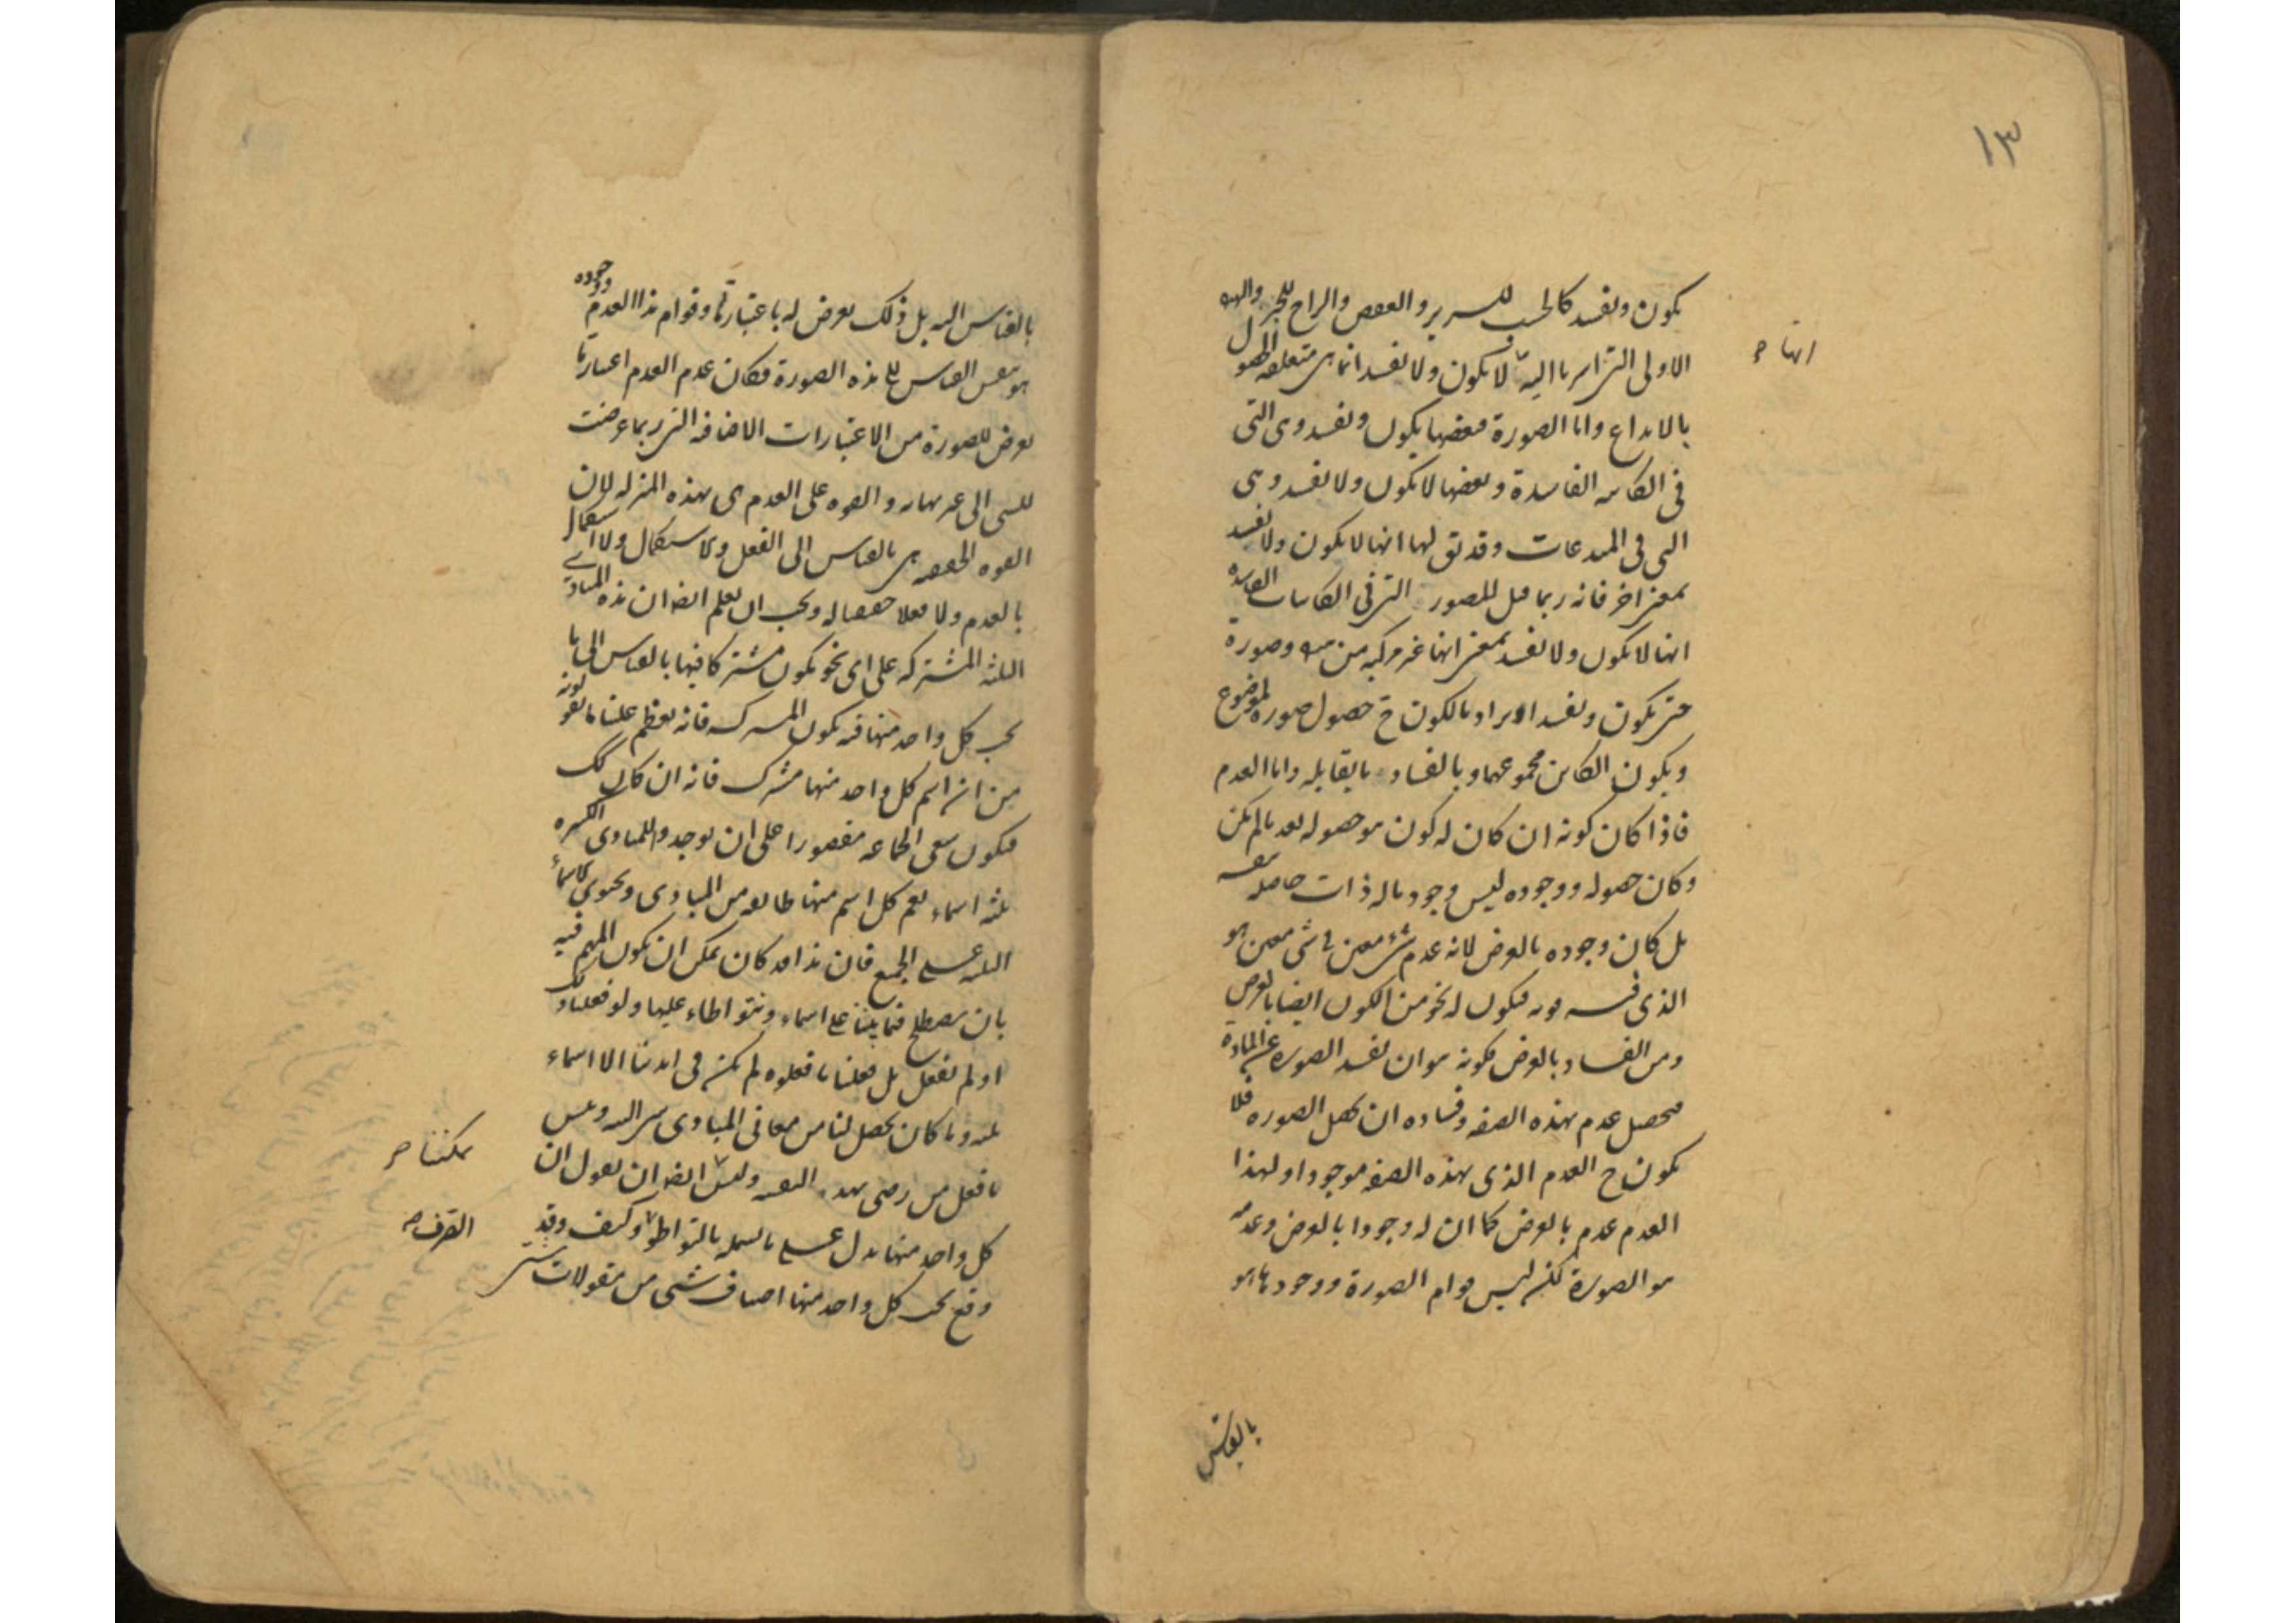 ١٣
يكون ويفسد كالخشب للسرير والعفص والزاج للحبر والهيولى
الاولى التى اشرنا اليها لا يكون ولا يفسد انما هى متعلقة الحصول
انها
بالابداع واما الصورة فبعضها يكون ويفسد وهى التى
فى الكاينة الفاسدة وبعضها لا يكون ولا يفسد وهى
التى فى المبدعات وقد يق لها انها لا يكون ولا يفسد
بمعنى اخر فانه ربما قيل للصور التى فى الكاينات الفاسدة
انها لا يكون ولا يفسد بمعنى انها غير مركبة من وصورة
حتى يكون ويفسد اذ يراد بالكون ح حصول صورة لموضوع
ويكون الكاين مجموعهما وبالفساد ما يقابله واما العدم
فاذا كان كونه ان كان له كون هو حصوله بعد ما لم يكن
وكان حصوله ووجوده ليس وجود ماله ذات حاصلة بنفسه
بل كان وجوده بالعرض لانه عدم شىء معين فى شى معين هو
الذى فيه قوته فيكون له نحو من الكون ايضا بالعرض
ومن الفساد بالعرض فكونه هو ان يفسد الصورة عن المادة
فيحصل عدم بهذه الصفة وفساده ان يحصل الصورة فلا
يكون ح العدم الذى بهذه الصفة موجودا ولهذا
العدم عدم بالعرض كما ان له وجودا بالعرض وعدمه
هو الصورة لكنه ليس قوام الصورة ووجودها هو
بالقياس
بالقياس اليه بل ذلك يعرض له باعتبار ما وقوام هذا العدم ووجوده
هو نفس القياس الى هذه الصورة فكان عدم العدم اعتبار ما
يعرض للصورة من الاعتبارات الاضافية التى ربما عرضت
للشى الى غير نهاية والقوة على العدم هى بهذه المنزلة لان
القوة الحقيقية هى بالقياس الى الفعل والاستكمال ولا استكمال
بالعدم ولا فعلا حقيقيا له ويجب ان يعلم ايضا ان هذه المبادى
الثلثة المشتركة على اى نحو يكون مشتركا فيها بالقياس الى ما
تحت كل واحد منها فيه يكون المشترك فانه يعظم علينا ما يقولونه
من ان اسم كل واحد منها مشترك فانه ان كان كك
فيكون سعى الجماعة مقصورا على ان يوجد للمبادى الكثيرة
ثلثة اسماء يعم كل اسم منها طايفة من المبادى ويحتوى الاسماء
الثلثة على الجميع فان هذا قد كان يمكن ان يكون المهم فيه
بان يصطلح فيما بيننا على اسماء ونتواطاء عليها ولو فعلنا ذلك
او لم نفعل بل فعلنا ما فعلوه لم يكن فى ايدينا الا اسماء
ثلثة وما كان يحصل لنا من معانى المبادى شى البتة وبئس
ما فعل من رضى بهذه لنفسه وليس ايضا ان نقول ان
يمكننا
كل واحد منها يدل على ما يشمله بالتواطؤ وكيف وقد
الصرف
وقع تحت كل واحد منها اصناف شتى من مقولات شتى